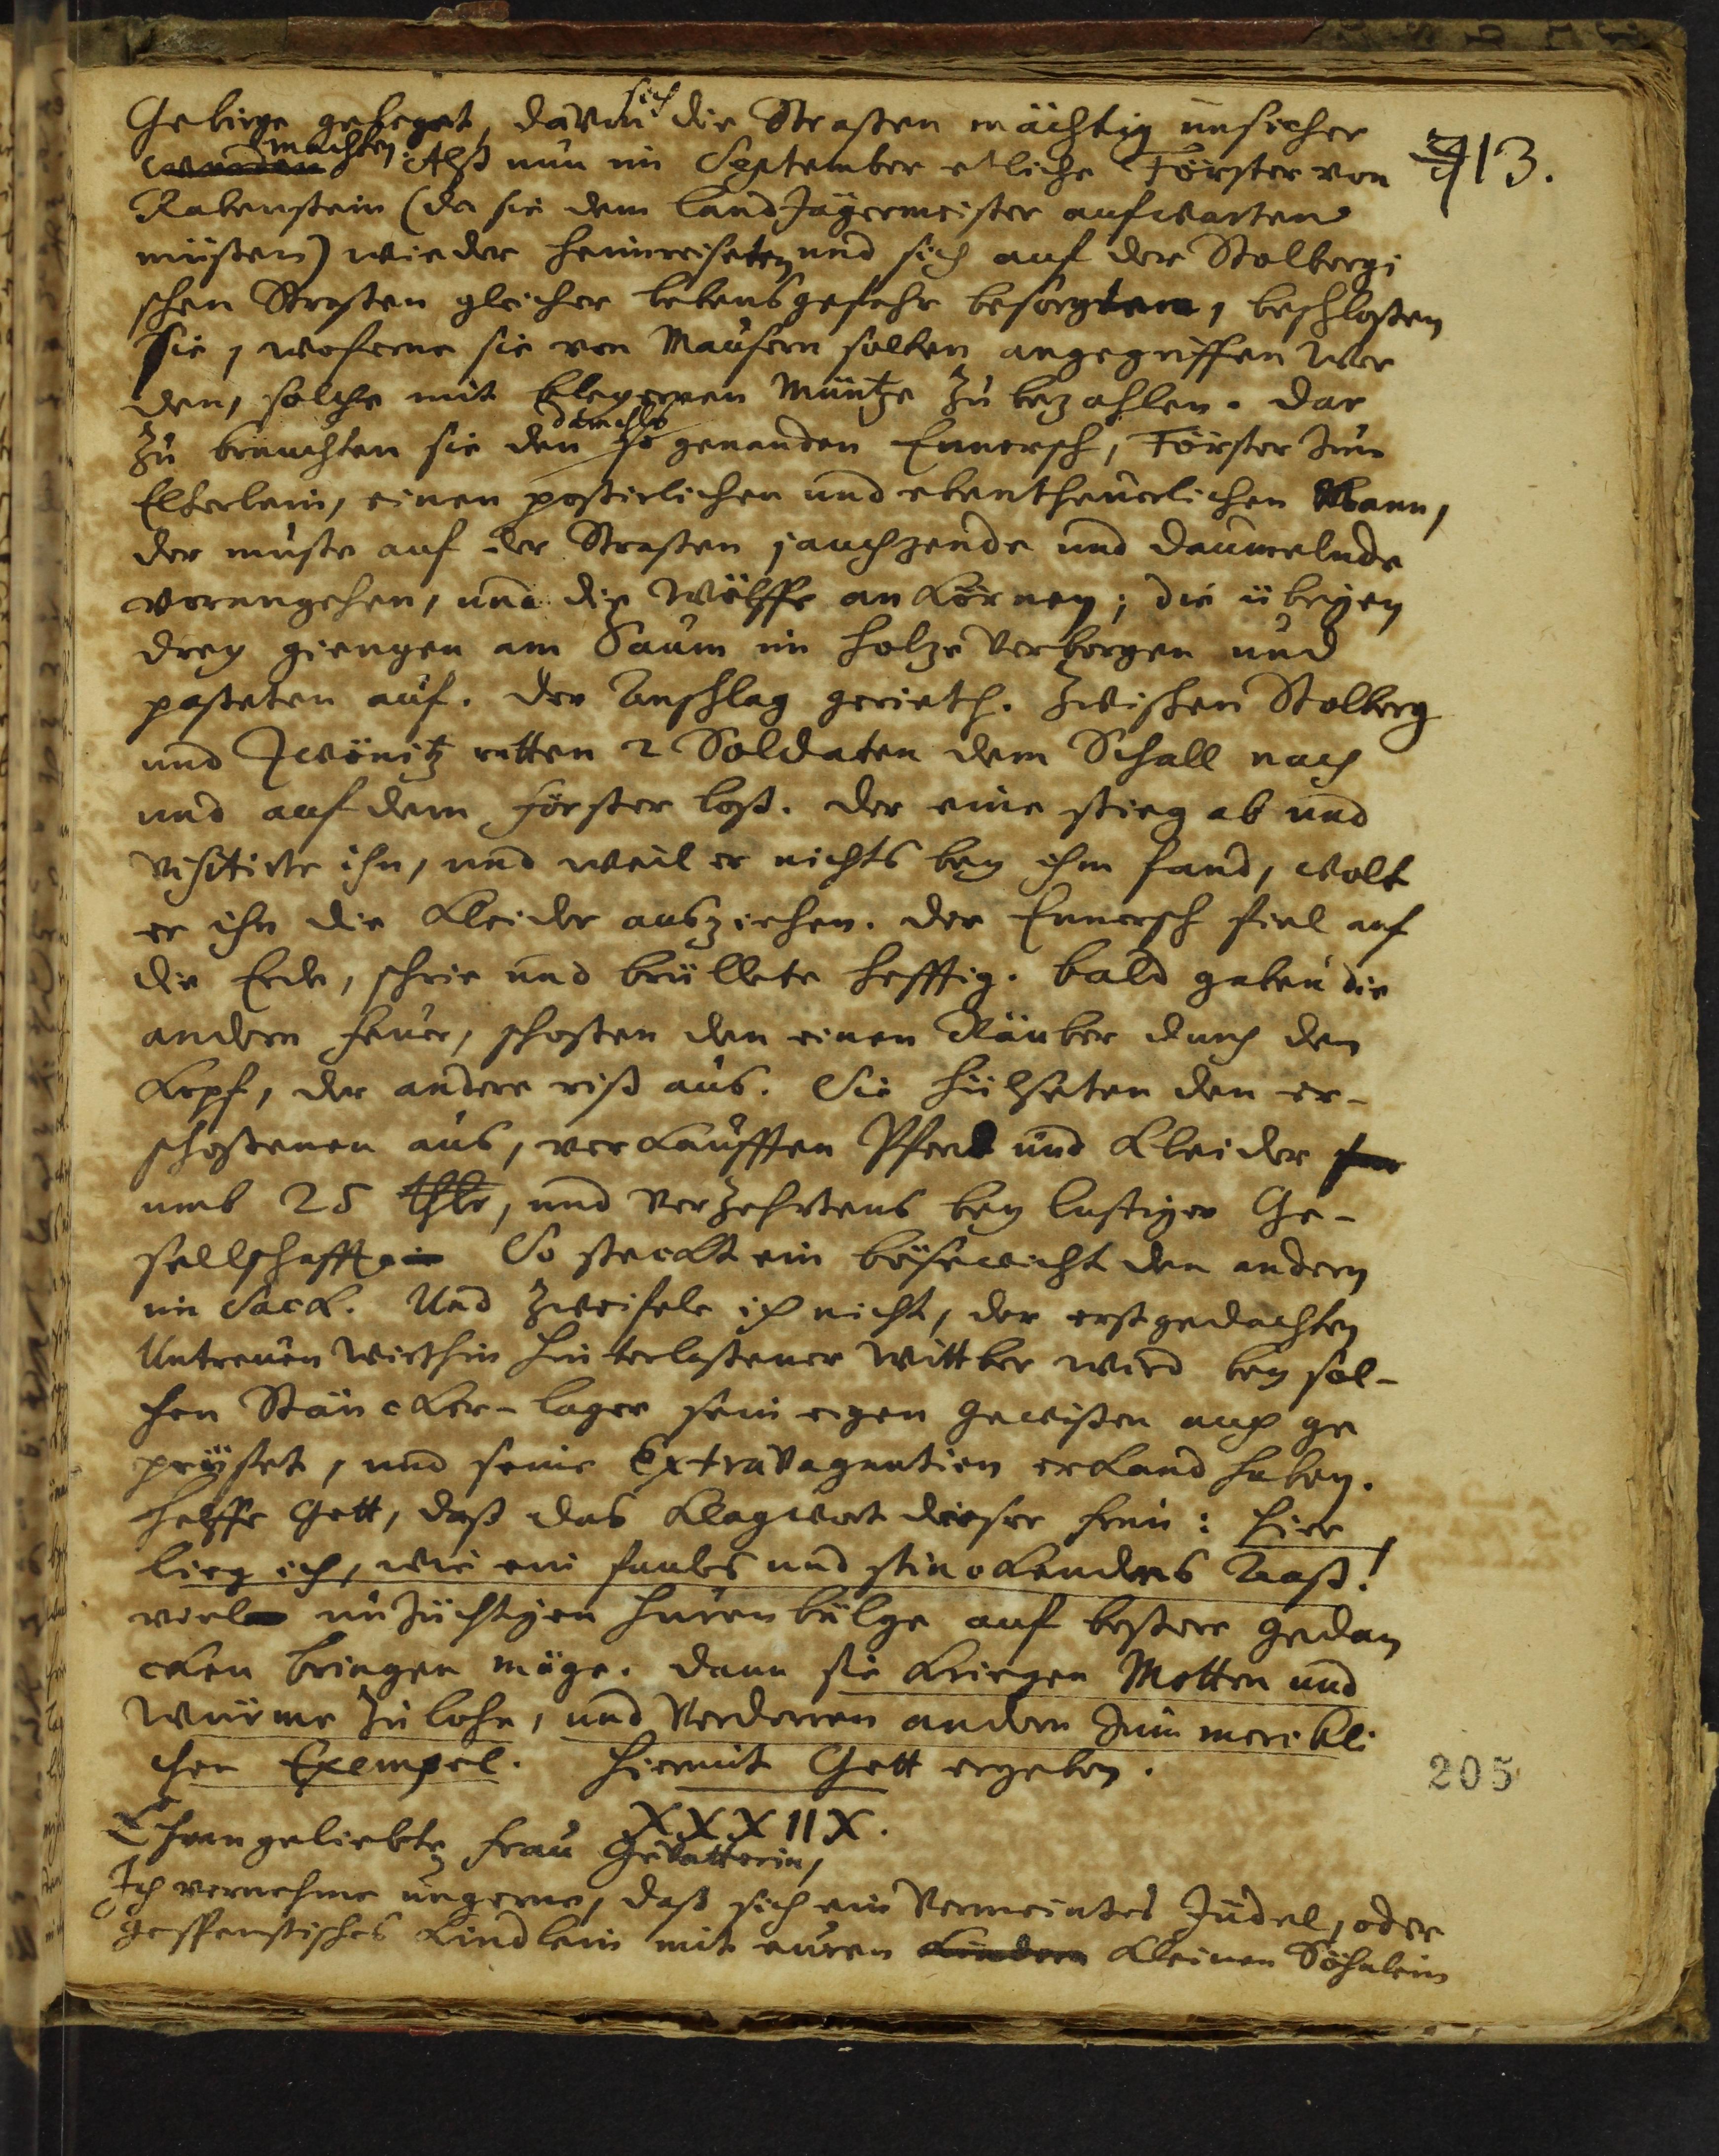 Gebirge geheget, davon sich die Straßen mächtig unsicher
wurden machten. Alß nun im September etliche Förster von 713.
Rabenstein (da sie dem Land Jägermeister aufwarten
müßen) wieder heimreiseten und sich auf der Stolbergi
schen Straßen gleicher lebensgefahr besorgten, beschloßen
sie, woferne sie von Mausern solten angegriffen wer
den, solche mit Müntze zu bezahlen. dar
zu brauchten sie den so genanden Ennersch, Förster zum
Elterlein, einen poßirlichen und ebentheurlichen Mann,
der muste auf der Straßen jauchzende und daumelnde
vorangehen, und die Wölffe ankörnen; die übrigen
drey giengen am Saum im holze verborgen und
paßeten auf. der Anschlag gerieth. Zwischen Stolberg
und Zwönitz ritten 2 Soldaten dem Schall nach
und auf dem Förster loß. der eine stieg ab und
visitirte ihn, und weil er nichts bey ihm fand, wolt
er ihn die Kleider ausziehen. der Ennersch fiel auf
die Erde, schrie und brüllete hefftig. bald gaben die
andern feuer, schoßen den einen Räuber durch den
Kopf, der andere riß aus. Sie hülseten den er-
schoßenen aus, verkaufften Pferd und Kleider
umb 25 thlr, und verzehrtens bey lustiger Ge-
sellschafft. So steckt ein bösewicht den andern
im Sack. Und zweifele ich nicht, der erstgedachten
Untreuen Wirthin hinterlaßener Wittber wird bey sol-
chen Stäncker-lager sein eigen gewißen auch ge
prüfet, und seine Extravagantien erkand haben.
helffe Gott, daß das Klagwort dieser frau: hier
lieg ich, wie ein faules und stinckendes Aaß!
viel unzüchtigen hurenbälge auf beßere gedan
cken bringen möge. dann sie kriegen Motten und
Würme zu lohn, und verdorren andern zum mercklichen
chen Exempel. hiermit Gott ergeben. 205
XXXIIX.
Ehrengeliebte frau Gevatterin,
Ich vernehme ungerne, daß sich ein vermeintes Jüdel, oder
gespenstisches Kindlein mit euren Kindern kleinen Söhnlein